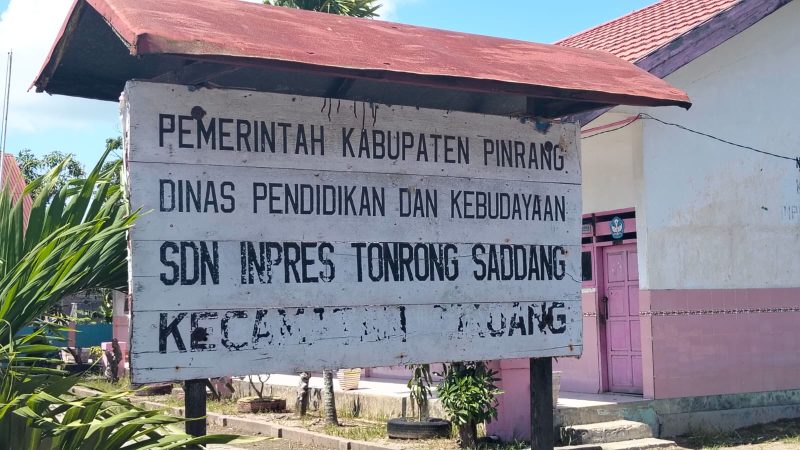 PEMERINTAH KABUPATEN PINRANG
DINAS PENDIDIKAN DAN KEBUDAYAAN
SDN INPRES TONRONG SADDANG
KECAMATAN